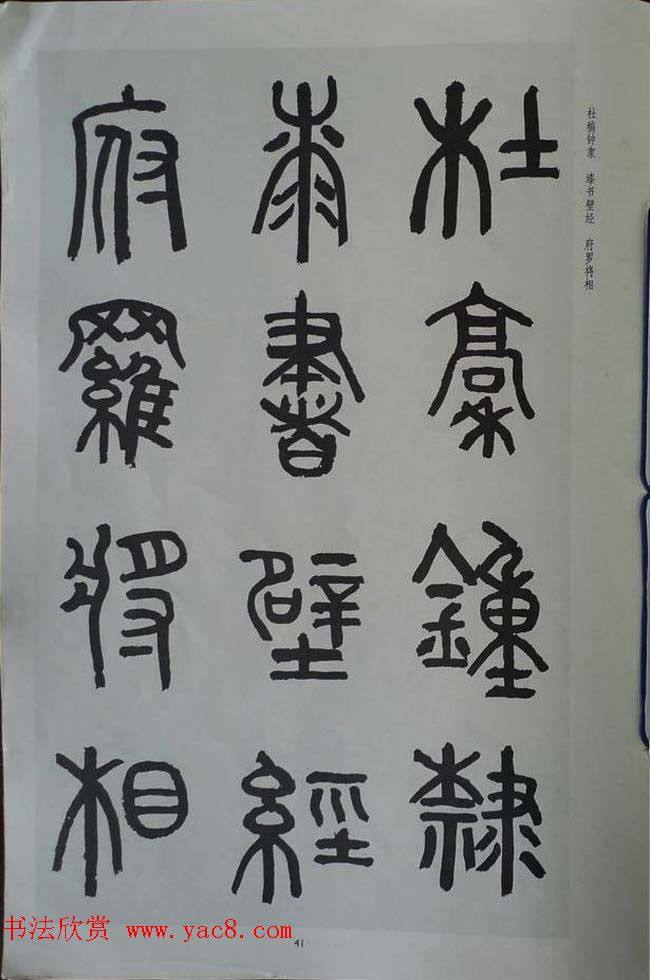 杜稾鍾隸
桼書壁經
府羅將相
杜稿钟隶 漆书壁经 府罗将相
41
书法欣赏 www.yac8.com